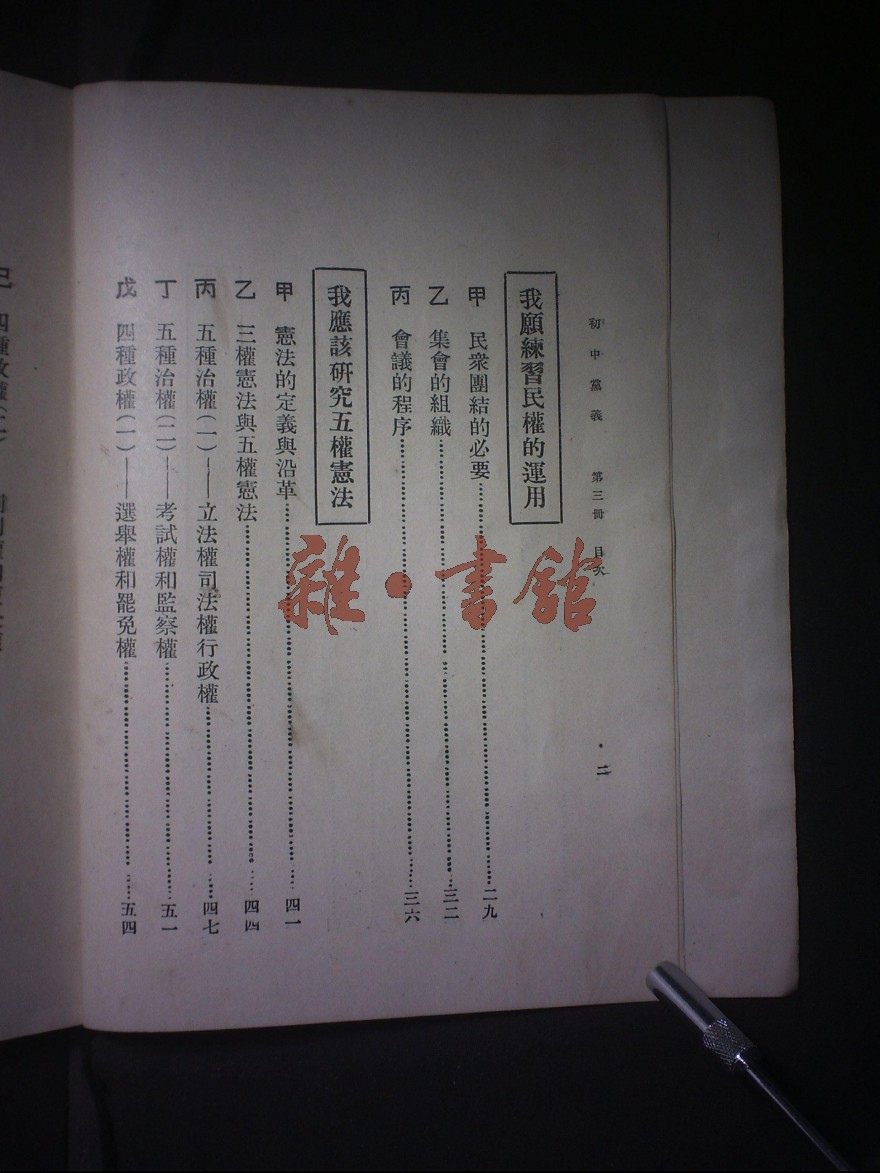 初中黨義 第三冊 目次 二
我願練習民權的運用
甲 民衆團結的必要……二九
乙 集會的組織……三二
丙 會議的程序……三六
我應該研究五權憲法
甲 憲法的定義與沿革……四一
乙 三權憲法與五權憲法……四四
丙 五種治權(一)——立法權司法權行政權……四七
丁 五種治權(二)——考試權和監察權……五一
戊 四種政權(一)——選舉權和罷免權……五四
雜·書館